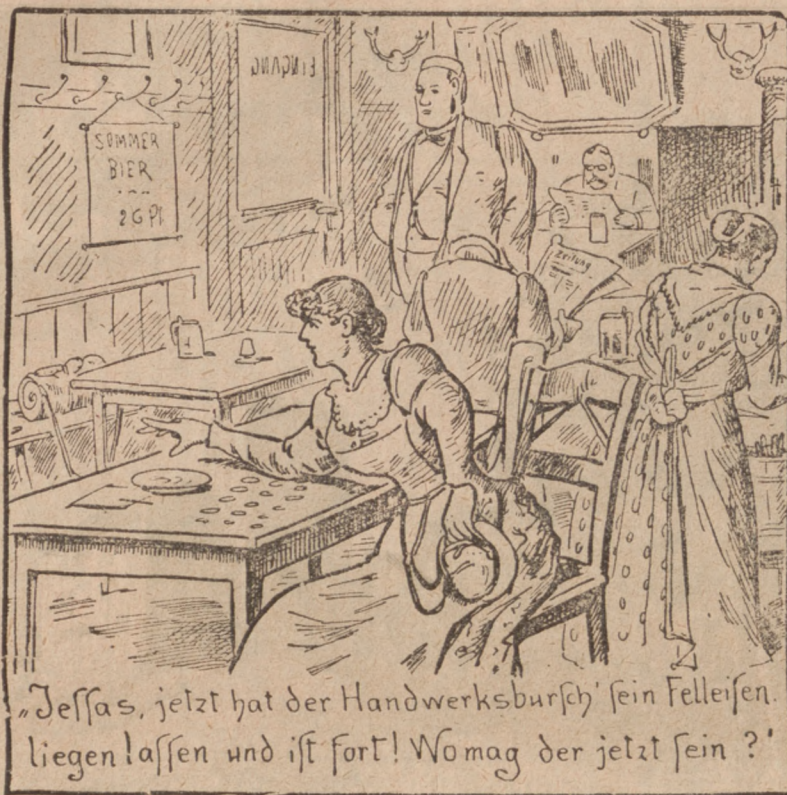 EINGANG
SOMMER
BIER
26 Pf
Zeitung
„Jeſſas, jetzt hat der Handwerksburſch' ſein Felleiſen.
liegen laſſen und iſt fort! Wo mag der jetzt ſein?"